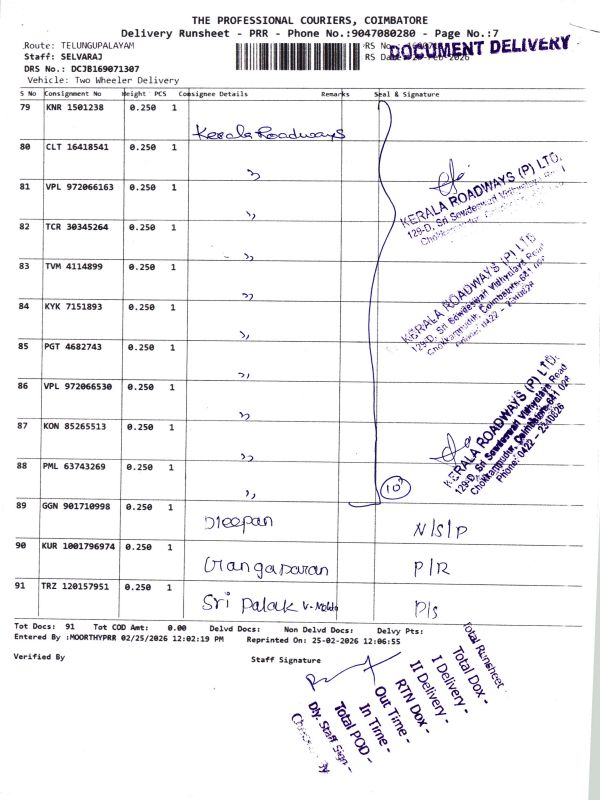 THE PROFESSIONAL COURIERS, COIMBATORE
Delivery Runsheet - PRR - Phone No.:9047080280 - Page No.:7
Route: TELUNGUPALAYAM
RS No.:
DOCUMENT DELIVERY
Staff: SELVARAJ
RS Date:
DRS No.: DCJB169071307
Vehicle: Two Wheeler Delivery
S No Consignment No Weight PCS Consignee Details Remarks Seal & Signature
79 KNR 1501238 0.250 1
Kerala Roadways
80 CLT 16418541 0.250 1
,,
81 VPL 972066163 0.250 1
,,
82 TCR 30345264 0.250 1
,,
83 TVM 4114899 0.250 1
,,
84 KYK 7151893 0.250 1
,,
85 PGT 4682743 0.250 1
,,
86 VPL 972066530 0.250 1
,,
87 KON 85265513 0.250 1
,,
88 PML 63743269 0.250 1
,,
KERALA ROADWAYS (P) LTD.
129-D, Sri Sowdeswari Vidhyalaya Road
KERALA ROADWAYS (P) LTD
129-D, Sri Sowdeswari Vidhyalaya Road
Chokkampudur, Coimbatore-641 026
Phone: 0422 - 2340626
KERALA ROADWAYS (P) LTD.
129-D, Sri Sowdeswari Vidhyalaya Road
Chokkampudur, Coimbatore-641 026
Phone: 0422 - 2340626
89 GGN 901710998 0.250 1
Dieepan N/S/P
90 KUR 1001796974 0.250 1
Gangaparan P/R
91 TRZ 120157951 0.250 1
Sri Palak P/S
Tot Docs: 91 Tot COD Amt: 0.00 Delvd Docs: Non Delvd Docs: Delvy Pts:
Entered By :MOORTHYPRR 02/25/2026 12:02:19 PM Reprinted On: 25-02-2026 12:06:55
Verified By Staff Signature
Total Runsheet -
Total Dox -
I Delivery -
II Delivery -
RTN Dox -
Out Time -
In Time -
Total POD -
Dly. Staff Sign -